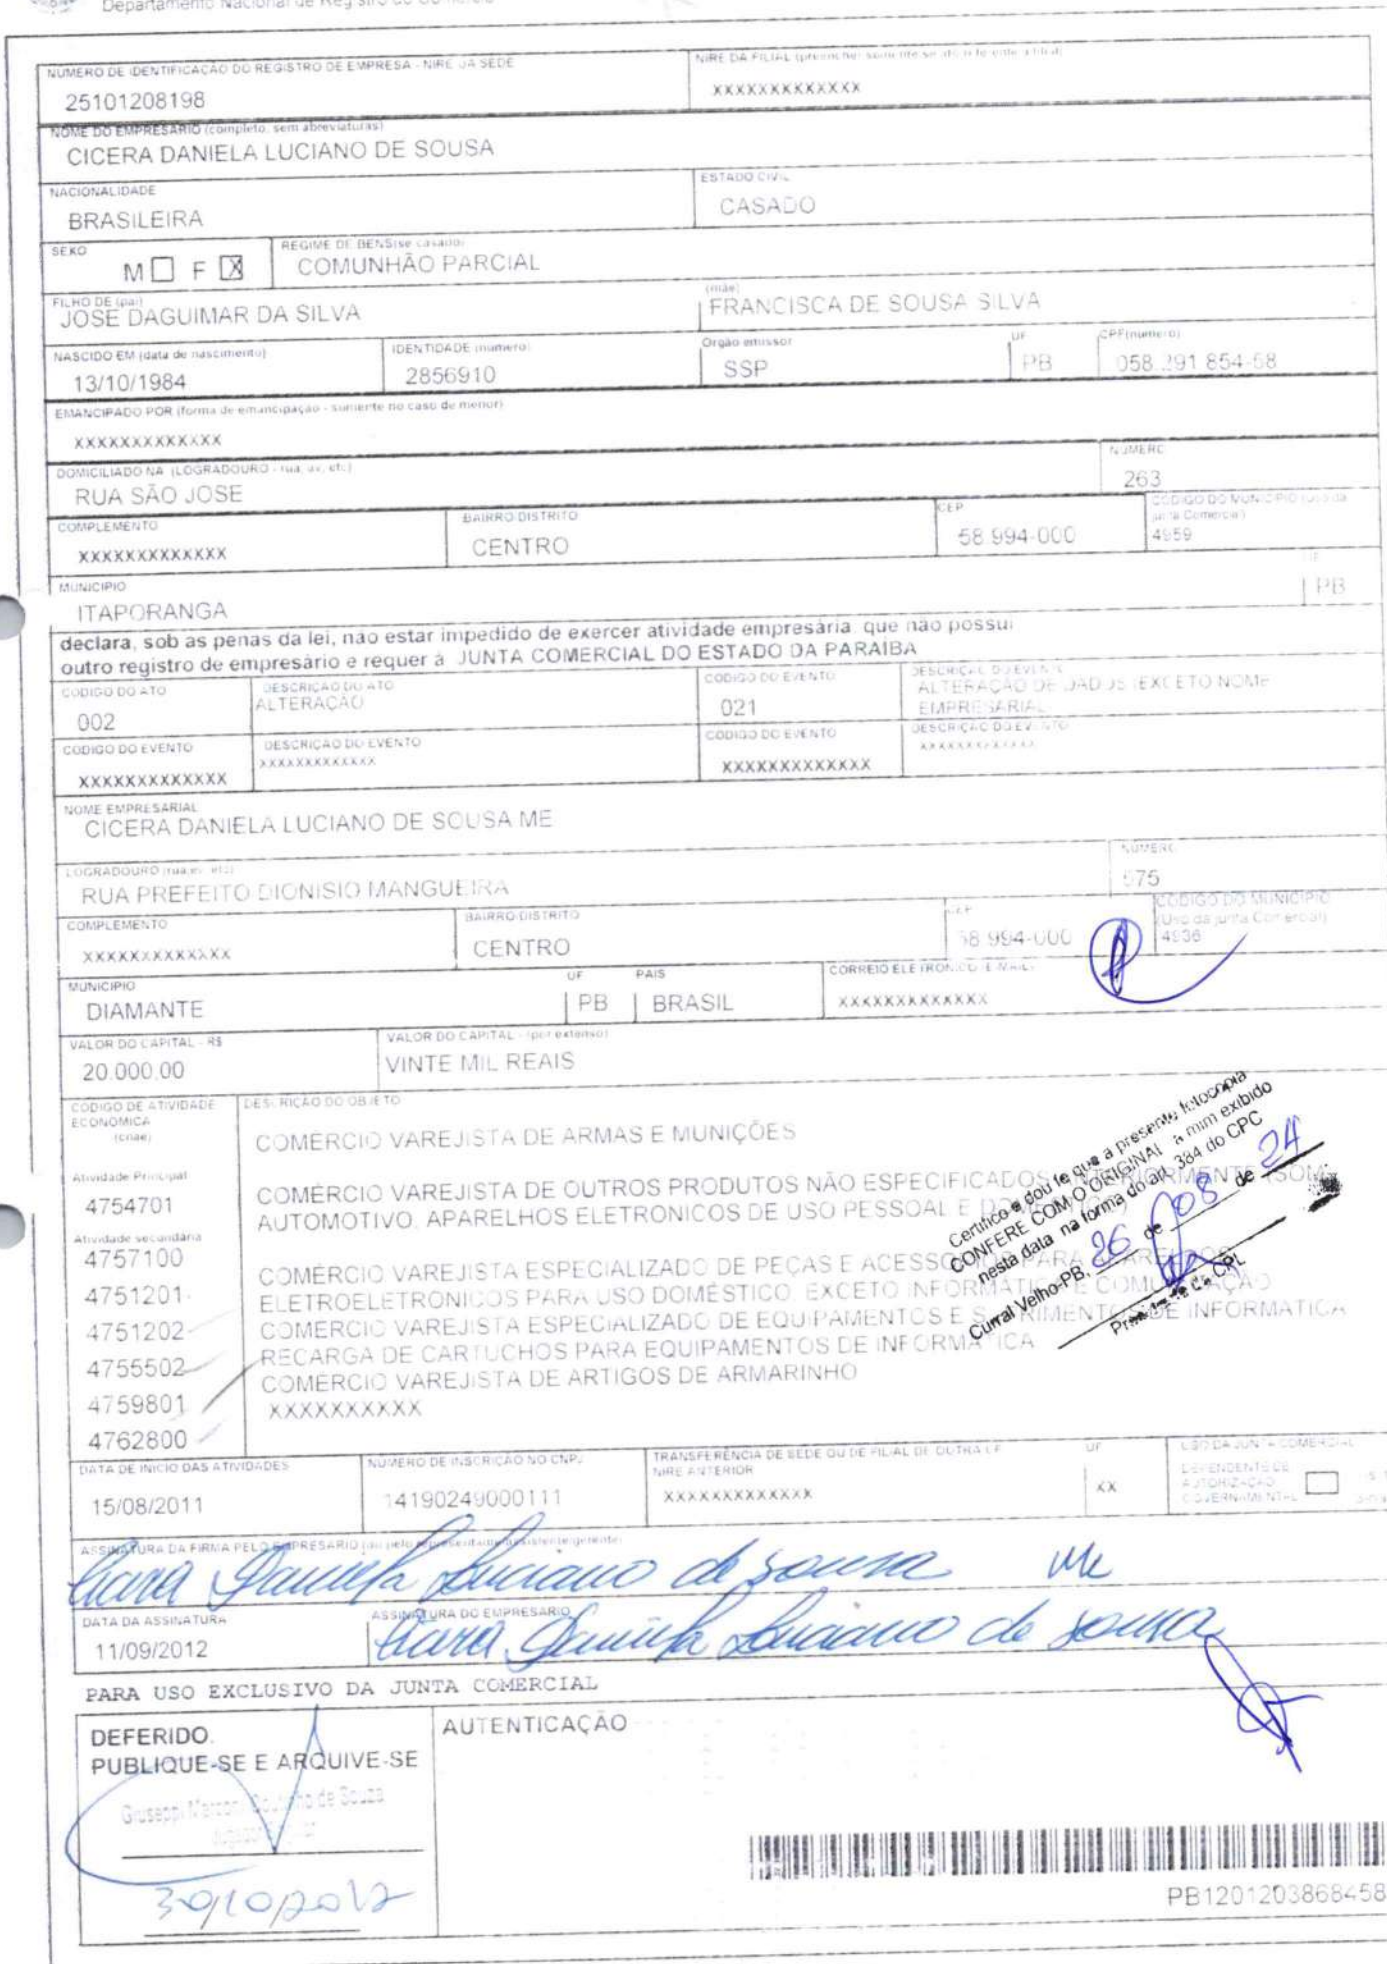 Departamento Nacional de Registro do Comércio
NUMERO DE IDENTIFICAÇÃO DO REGISTRO DE EMPRESA - NIRE DA SEDE
25101208198
NIRE DA FILIAL
XXXXXXXXXXXXX
NOME DO EMPRESARIO (completo, sem abreviaturas)
CICERA DANIELA LUCIANO DE SOUSA
NACIONALIDADE
BRASILEIRA
ESTADO CIVIL
CASADO
SEXO
M F X
REGIME DE BENS(se casado)
COMUNHÃO PARCIAL
FILHO DE (pai)
JOSE DAGUIMAR DA SILVA
(mãe)
FRANCISCA DE SOUSA SILVA
NASCIDO EM (data de nascimento)
13/10/1984
IDENTIDADE (numero)
2856910
Orgão emissor
SSP
UF
PB
CPF(numero)
EMANCIPADO POR (forma de emancipação - somente no caso de menor)
XXXXXXXXXXXXX
DOMICILIADO NA (LOGRADOURO - rua, av, etc)
RUA SÃO JOSE
NUMERO
263
COMPLEMENTO
XXXXXXXXXXXXX
BAIRRO/DISTRITO
CENTRO
CEP
58.994-000
CODIGO DO MUNICIPIO (Uso da junta Comercial)
4959
MUNICIPIO
ITAPORANGA
UF
PB
declara, sob as penas da lei, não estar impedido de exercer atividade empresária, que não possui
outro registro de empresário e requer à JUNTA COMERCIAL DO ESTADO DA PARAIBA
CODIGO DO ATO
002
DESCRIÇÃO DO ATO
ALTERAÇÃO
CODIGO DO EVENTO
021
DESCRIÇÃO DO EVENTO
ALTERAÇÃO DE DADOS (EXCETO NOME
EMPRESARIAL
CODIGO DO EVENTO
XXXXXXXXXXXXX
DESCRIÇÃO DO EVENTO
XXXXXXXXXXXXX
CODIGO DO EVENTO
XXXXXXXXXXXXX
DESCRIÇÃO DO EVENTO
XXXXXXXXXXXXX
NOME EMPRESARIAL
CICERA DANIELA LUCIANO DE SOUSA ME
LOGRADOURO (rua,av, etc)
RUA PREFEITO DIONISIO MANGUEIRA
NUMERO
COMPLEMENTO
XXXXXXXXXXXXX
BAIRRO/DISTRITO
CENTRO
CEP
58.994-000
CODIGO DO MUNICIPIO
(Uso da junta Comercial)
4936
MUNICIPIO
DIAMANTE
UF
PB
PAIS
BRASIL
CORREIO ELETRONICO (E-MAIL)
XXXXXXXXXXXXX
VALOR DO CAPITAL - R$
20.000,00
VALOR DO CAPITAL - (por extenso)
VINTE MIL REAIS
CODIGO DE ATIVIDADE
ECONOMICA
(cnae)
DESCRIÇÃO DO OBJETO
COMERCIO VAREJISTA DE ARMAS E MUNIÇÕES
Atividade Principal
4754701
Atividade secundária
4757100
4751201
4751202
4755502
4759801
4762800
COMÉRCIO VAREJISTA DE OUTROS PRODUTOS NÃO ESPECIFICADOS (SOM
AUTOMOTIVO, APARELHOS ELETRONICOS DE USO PESSOAL E
COMÉRCIO VAREJISTA ESPECIALIZADO DE PEÇAS E PARA
ELETROELETRONICOS PARA USO DOMÉSTICO, EXCETO INFORMÁTICA E COMUNICAÇÃO
COMERCIO VAREJISTA ESPECIALIZADO DE EQUIPAMENTOS E SUPRIMENTOS DE INFORMATICA
RECARGA DE CARTUCHOS PARA EQUIPAMENTOS DE INFORMATICA
COMÉRCIO VAREJISTA DE ARTIGOS DE ARMARINHO
XXXXXXXXXX
Certifico e dou fe que a presente fotocópia
CONFERE COM O ORIGINAL a mim exibido
nesta data na forma do art. 384 do CPC
Curral Velho-PB, 26 de 08 de 24
DATA DE INICIO DAS ATIVIDADES
15/08/2011
NÚMERO DE INSCRIÇÃO NO CNPJ
14190249000111
TRANSFERÊNCIA DE SEDE OU DE FILIAL DE OUTRA UF
NIRE ANTERIOR
XXXXXXXXXXXXX
UF
XX
USO DA JUNTA COMERCIAL
DEPENDENTE DE
AUTORIZAÇÃO
GOVERNAMENTAL
ASSINATURA DA FIRMA PELO EMPRESARIO (ou pelo representante/assistente/gerente)
Cicera Daniela Luciano de Sousa ME
DATA DA ASSINATURA
11/09/2012
ASSINATURA DO EMPRESARIO
Cicera Daniela Luciano de Sousa
PARA USO EXCLUSIVO DA JUNTA COMERCIAL
DEFERIDO.
PUBLIQUE-SE E ARQUIVE-SE
AUTENTICAÇÃO
30/10/2012
PB1201203868458